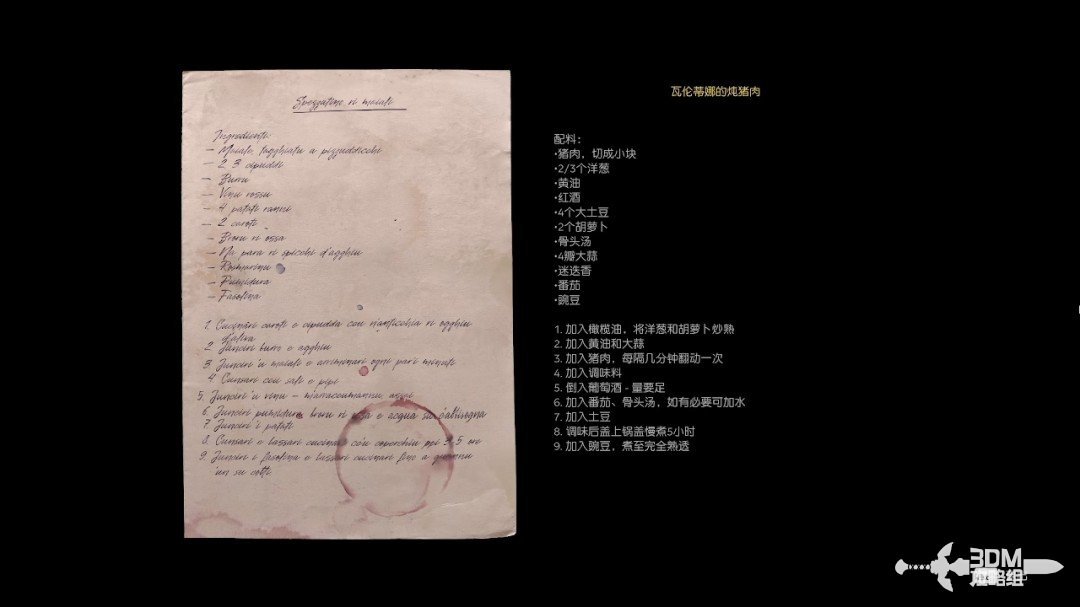 Spezzatino ri maiali
Ingredienti:
– Maiale, tagghiatu a pizzuddicchi
– 2 3 cipuddi
– Burru
– Vinu rossu
– 4 patati ranni
– 2 caroti
– Brodu ri ossa
– Na para ri spicchi d'agghiu
– Rosmarinu
– Pumidura
– Fasolina
1. Cucinari caroti e cipudda cou n'anticchia ri ogghiu
d'aliva
2. Junciri burro e agghiu
3. Junciri 'u maiali e arriminari ogni pari minuti
4. Cunsari cou sali e pipi
5. Junciri 'u vinu –
6. Junciri pumidura, brodu ri ossa e acqua su c'abbisogna
7. Junciri i patati
8. Cunsari e lassari cucinari cou cuperchiu ppi 5 ore
9. Junciri i fasolina e lassari cucinari fino a quannu
'un su cotti
瓦伦蒂娜的炖猪肉
配料：
•猪肉，切成小块
•2/3个洋葱
•黄油
•红酒
•4个大土豆
•2个胡萝卜
•骨头汤
•4瓣大蒜
•迷迭香
•番茄
•豌豆
1. 加入橄榄油，将洋葱和胡萝卜炒熟
2. 加入黄油和大蒜
3. 加入猪肉，每隔几分钟翻动一次
4. 加入调味料
5. 倒入葡萄酒 - 量要足
6. 加入番茄、骨头汤，如有必要可加水
7. 加入土豆
8. 调味后盖上锅盖慢煮5小时
9. 加入豌豆，煮至完全熟透
3DM
攻略组